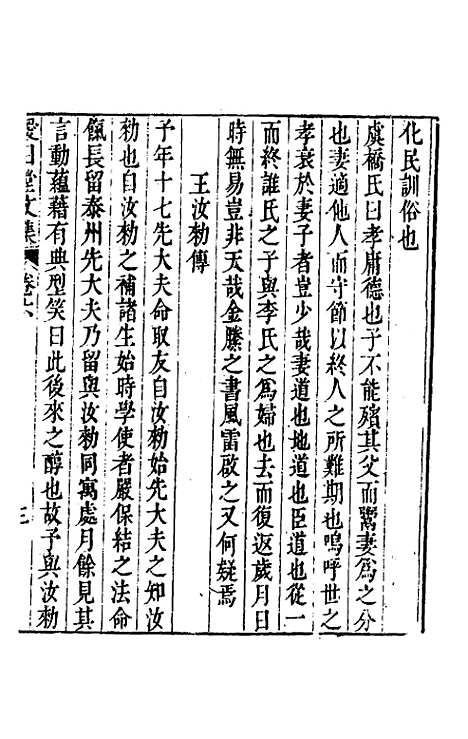 化民訓俗也
虞橋氏曰孝庸德也子不能殯其父而鬻妻爲之分
也妻適他人而守節以終人之所難期也嗚呼世之
孝衰於妻子者豈少哉妻道也地道也臣道也從一
而終誰氏之子與李氏之爲婦也去而復返歲月日
時無易豈非天哉金縢之書風雷啟之又何疑焉
王汝勑傳
予年十七先大夫命取友自汝勑始先大夫之知汝
勑也自汝勑之補諸生始時學使者嚴保結之法命
餼長留泰州先大夫乃留與汝勑同寓處月餘見其
言動蘊藉有典型笑曰此後來之醇也故予與汝勑
愛日堂文集 卷六 三